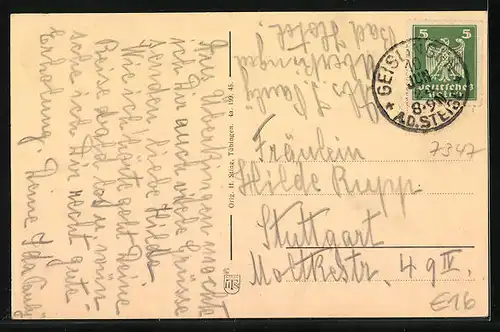 Aus Überkingen möchte
ich Dir auch viele Grüsse
senden, liebe Hilde.
Wie ich hörte geht Deine
Reise bald los u. wün-
sche ich Dir recht gute
Erholung. Deine Ida
Überkingen
Bad Hotel.
Orig. H. Sting, Tübingen. 4a 199. 45
5 5
Deutsches
Reich
GEISLINGEN
10
JUN
8-9
* A.D. STEIGE
Fräulein
Hilde Rupp
Stuttgart
Moltkestr. 49 II.
7347
€16